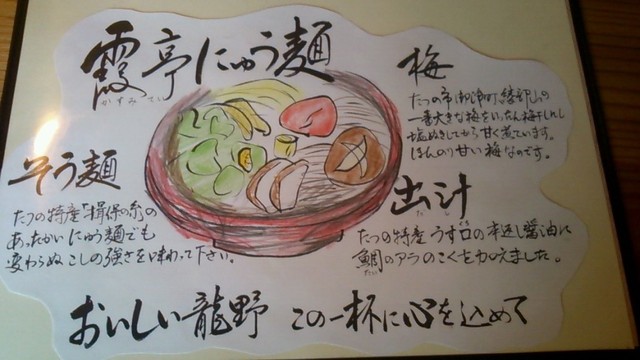 霞亭にゅう麺
かすみ てい
梅
たつの市御津町綾部山の
一番大きな梅をいったん梅干しにし
塩ぬきしてから甘く煮ています。
ほんのり甘い梅なのです。
そう麺
たつの特産「揖保の糸」の
あったかいにゅう麺でも
変わらぬこしの強さを味わって下さい。
出汁
だし
たつの特産うす口の半返し醤油に
鯛のアラのこくを加えました。
たい
おいしい龍野 この一杯に心を込めて